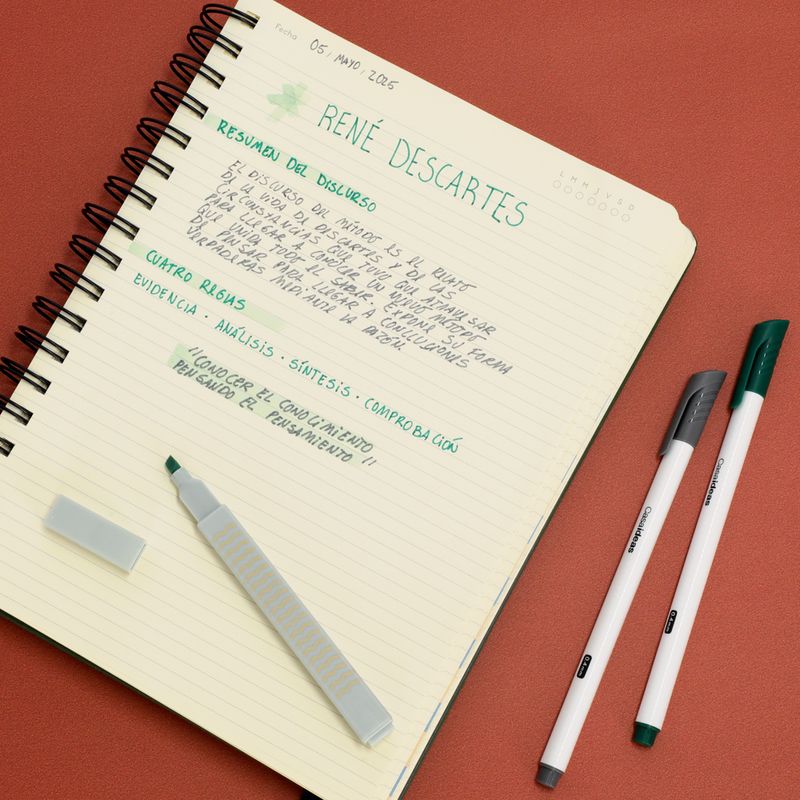 Fecha 05 / MAYO / 2025
RENÉ DESCARTES
L M M J V S D
RESUMEN DEL DISCURSO
EL DISCURSO DEL MÉTODO ES EL RELATO
DE LA VIDA DE DESCARTES Y DE LAS
CIRCONSTANCIAS QUE TUVO QUE ATRAVESAR
PARA LLEGAR A CONOCER UN NUEVO MÉTODO
QUE UNIDA TODO EL SABER. EXPONE SU FORMA
DE PENSAR PARA LLEGAR A CONCLUCIONES
VERDADERAS MEDIANTE LA RAZÓN.
CUATRO REGLAS
EVIDENCIA · ANÁLISIS · SÍNTESIS · COMPROBACIÓN
"CONOCER EL CONOCIMIENTO
PENSANDO EL PENSAMIENTO"
Casaideas
0.4 mm
Casaideas
0.4 mm